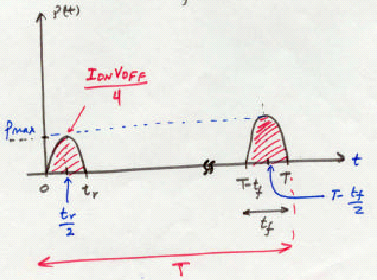 P(t)
I_ON V_OFF
4
Pmax
0
tr
2
tr
T-tf
T
t
T- tf
2
tf
T